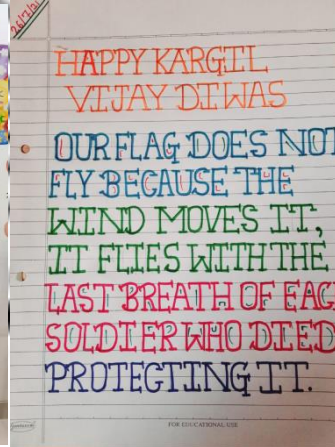 26/7/21
HAPPY KARGIL
VIJAY DIWAS
OUR FLAG DOES NOT
FLY BECAUSE THE
WIND MOVES IT,
IT FLIES WITH THE
LAST BREATH OF EAC
SOLDIER WHO DIED
PROTECTING IT.
FOR EDUCATIONAL USE